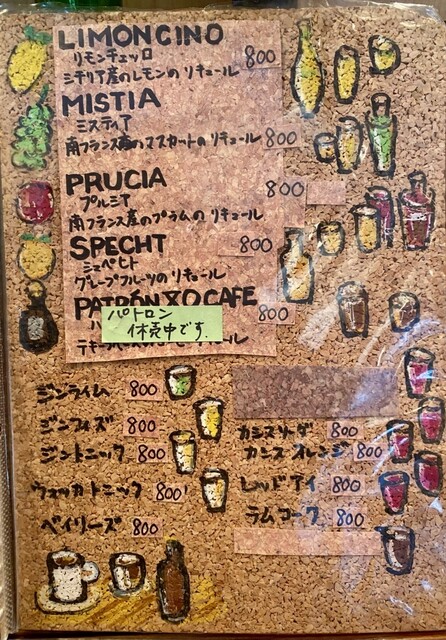 LIMONCINO
リモンチェッロ 800
シチリア産のレモンのリキュール
MISTIA
ミスティア
南フランス産のマスカットのリキュール 800
PRUCIA 800
プルシア
南フランス産のプラムのリキュール
SPECHT 800
シュペヒト
グレープフルーツのリキュール
PATRÓN XO CAFE 800
パトロン
休売中です.
リキュール
ジンライム 800
ジンフィズ 800
ジントニック 800
ウォッカトニック 800
ベイリーズ 800
カシスソーダ 800
カシスオレンジ 800
レッドアイ 800
ラムコーク 800